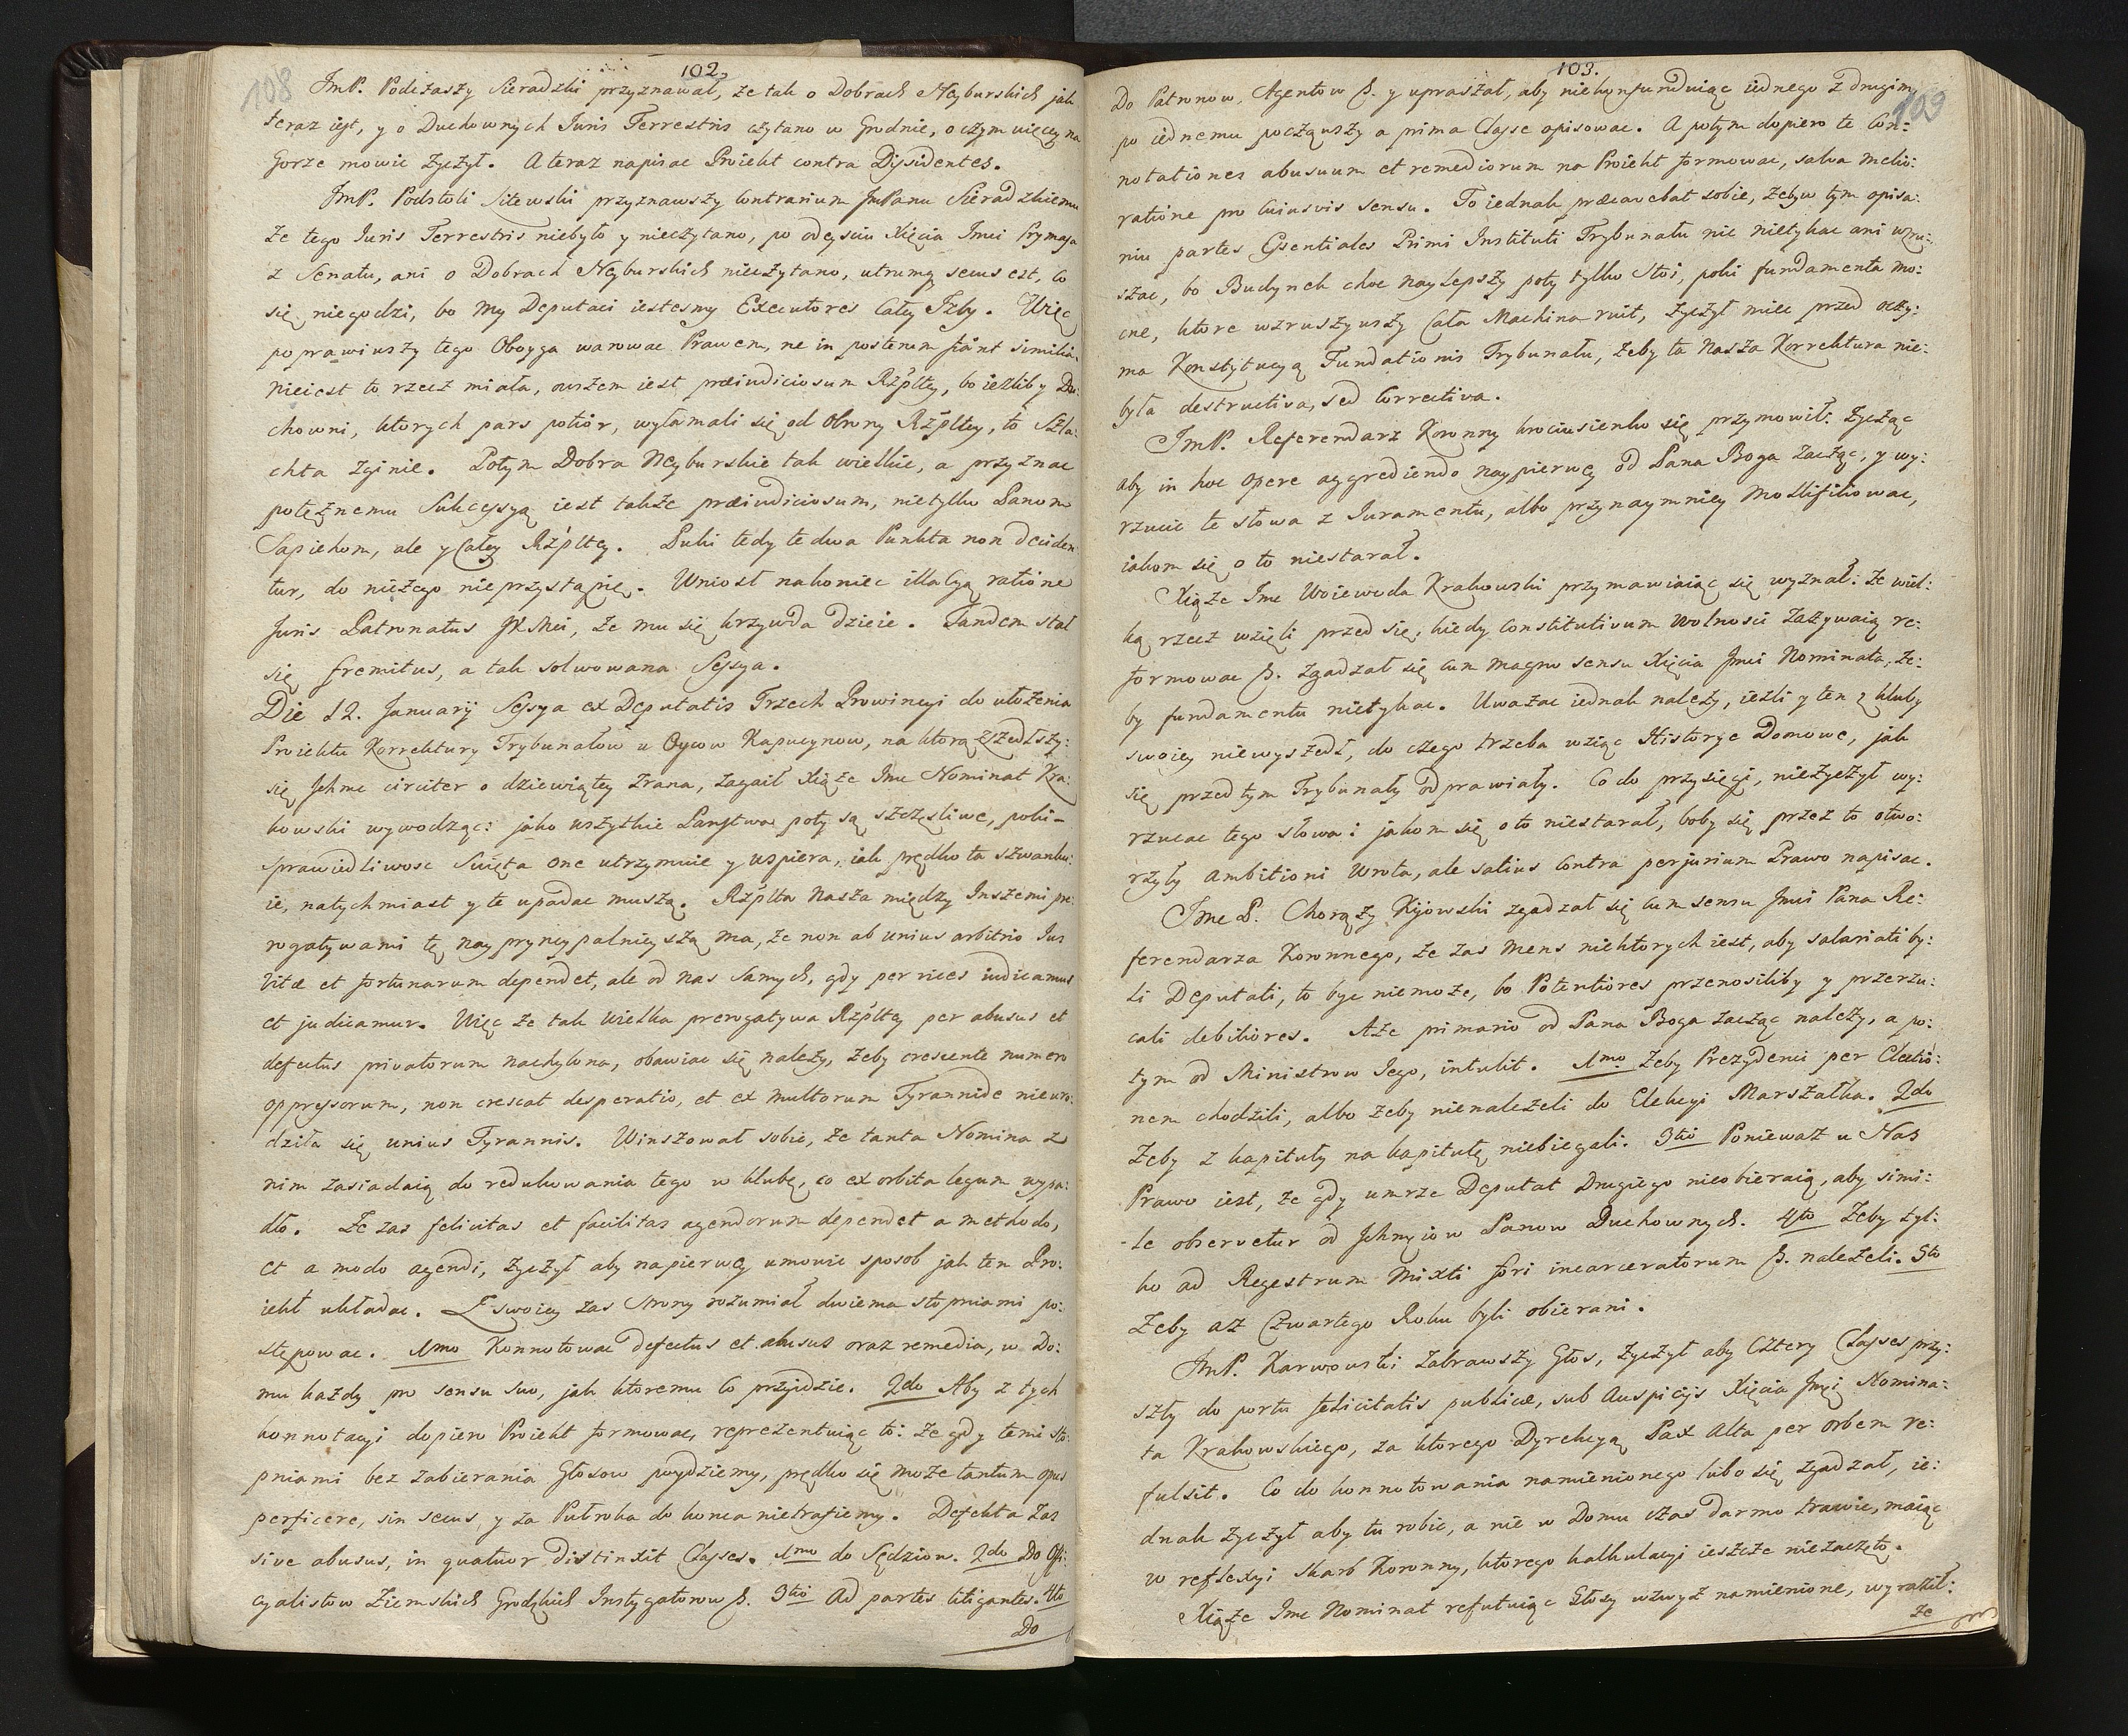 102.
108
JmP. Podczaszy Sieradzki przyznawał, że tak o Dobrach Neyburskich jak
teraz iest, y o Duchownych Iuris Terrestris czytano w Grodnie, o czym więcey na
Gorze mowic życzył. A teraz napisac Proiekt contra Dissidentes.
JmP. Podstoli Litewski przyznawszy contrarium JmPanu Sieradzkiemu
że tego Iuris Terrestris niebyło y nieczytano, po odeyściu Xięcia Jmci Prymasa
z Senatu, ani o Dobrach Neyburskich nieczytano, utrumq secus est, co
się niegodzi, bo my Deputaci iestesmy Executores całey Izby. Więc
poprawiwszy tego Oboyga warowac Prawem, ne in posterum fiant similia.
Nieiest to rzecz miała, owszem iest præiudiciosum Rzpltey, bo ieżliby Du:
chowni, ktorych pars potior, wyłamali się od Obrony Rzpltey, to Szla:
chta zginie. Potym Dobra Neyburskie tak wielkie, a przyznac
potężnemu Sukcessyą iest także præiudiciosum, nietylko Panom
Sapiehom, ale y całey Rzpltey. Puki tedy te dwa Punkta non deciden:
tur, do niczego nieprzystąpię. Wniosł nakoniec illacyą ratione
Juris Patronatus JKMci, że mu się krzywda dzieie. Tandem stał
się fremitus, a tak solwowana Sessya.
Die 12. Januarij Sessya ex Deputatis Trzech Prowincyi do ułożenia
Proiektu Korrektury Trybunałow u Oycow Kapucynow, na ktorą zszedłszy:
się Jchmc circiter o dziewiątey zrana, zagaił Xiąże Jmc Nominat Kra:
kowski wywodząc: jako wszytkie Państwa poty są szczęsliwe, poki-
sprawiedliwosc Swięta one utrzymuie y wspiera, iak prędko ta szwanku:
ie, natychmiast y te upadac muszą. Rzplta nasza między Inszemi pre:
rogatywami tę naypryncypalnieyszą ma, że non ab unius arbitrio Ius
vitæ et fortunarum dependet, ale od nas samych, gdy per vices iudicamus
et judicamur. Więc że tak wielka prerogatywa Rzpltey per abusus et
defectus privatorum nachylona, obawiac się należy, żeby crescente numero
oppressorum, non crescat desperatio, et ex multorum Tyrannide nieuro:
dziła się unius Tyrannis. Winszował sobie, że tanta Nomina z
nim zasiadaią do redukowania tego w klubę, co ex orbita legum wypa:
dło. Że zas felicitas et facilitas agendorum dependet a methodo,
et a modo agendi, życzył aby napierwey umowic sposob jak ten Pro:
iekt układac. Z swoiey zas strony rozumiał dwiema stopniami po:
stępowac. 1mo Konnotowac defectus et abusus oraz remedia, w Do:
mu każdy pro sensu suo, jak ktoremu co przyidzie. 2do Aby z tych
konnotacyi dopiero Proiekt formowac, reprezentuiąc to: że gdy temi sto:
pniami bez zabierania Głosow poydziemy, prędko się może tantum opus
perficere, sin secus, y za Pułroka do konca nietrafiemy. Defekta zas
sive abusus, in quatuor distinxit Classes. 1mo do Sędziow. 2do Do Offi:
cyalistow Ziemskich Grodzkich Instygatorow &. 3tio Ad partes litigantes. 4to
Do
103.
109
Do Patronow, Agentow &. y upraszał, aby niekonfunduiąc iednego z drugim,
po iednemu począwszy a prima Classe opisowac. A potym dopiero te Con:
notationes abusuum et remediorum na Proiekt formowac, salva melio:
ratione pro cuiusvis sensu. To iednak præcavebat sobie, żeby w tym opisa:
niu partes Essentiales Primi Instituti Trybunału nic nietykac ani wzru:
szac, bo Budynek choc naylepszy poty tylko stoi, poki fundamenta mo:
cne, ktore wzruszywszy cała Machina ruit, życzył miec przed oczy:
ma Konstytucyą Fundationis Trybunału, żeby ta nasza Korrektura nie:
była destructiva, sed correctiva.
JmP. Referendarz Koronny krociusienko się przymowił: życząc
aby in hoc opere aggrediendo naypierwey od Pana Boga zacząc, y wy:
rzucic te słowa z Iuramentu, albo przynaymniey modlifikowac,
iakom się o to niestarał.
Xiąże Jmc Woiewoda Krakowski przymawiaiąc się wyznał: że wiel:
ką rzecz wzięli przed się, kiedy constitutivum wolnosci zażywaią re:
formowac &. zgadzał się cum magno sensu Xięcia Jmci Nominata, że:
by fundamentu nietykac. Uważac iednak należy, ieżli y ten z kluby
swoiey niewyszedł, do czego trzeba wziąc Historye Domowe, jak
się przed tym Trybunały odprawiały. Co do przysięgi, nieżyczył wy:
rzucac tego słowa: jakom się o to niestarał, boby się przez to otwo:
rzyły Ambitioni wrota, ale satius contra perjurium Prawo napisac.
Jmc P. Chorąży Kijowski zgadzał się cum sensu Jmci Pana Re:
ferendarza Koronnego, że zas mens niektorych iest, aby salariati by:
li Deputati, to byc niemoże, bo Potentiores przenosiliby y przerzu:
cali debiliores. A że primario od Pana Boga zacząc należy, a po:
tym od Ministrow Jego, intulit. 1mo żeby Prezydenci per Electio:
nem chodzili, albo żeby nienależeli do Elekcyi Marszałka. 2do
Żeby z kapituły na kapitułę niebiegali. 3tio Poniewaz u Nas
Prawo iest, że gdy umrze Deputat drugiego nieobieraią, aby simi:
le observetur od Jchmciow Panow Duchownych. 4to Żeby tyl:
ko ad Regestrum Mixti fori incarceratorum &. należeli. 5to
Żeby aż czwartego Roku byli obierani.
JmP. Karwowski zabrawszy Głos, życzył aby cztery Classes przy:
szły do portu felicitatis publicæ, sub Auspicijs Xięcia Jmci Nomina:
ta Krakowskiego, za ktorego Dyrekcyą Pax Alta per orbem re:
fulsit. Co do konnotowania namienionego lubo się zgadzał, ie:
dnak życzył aby tu robic, a nie w Domu czas darmo trawic, maiąc
w reflexyi Skarb Koronny, ktorego kalkulacyi ieszcze niezaczęto.
Xiąże Jmc Nominat refutuiąc Głosy wzwyż namienione, wyraził:
że